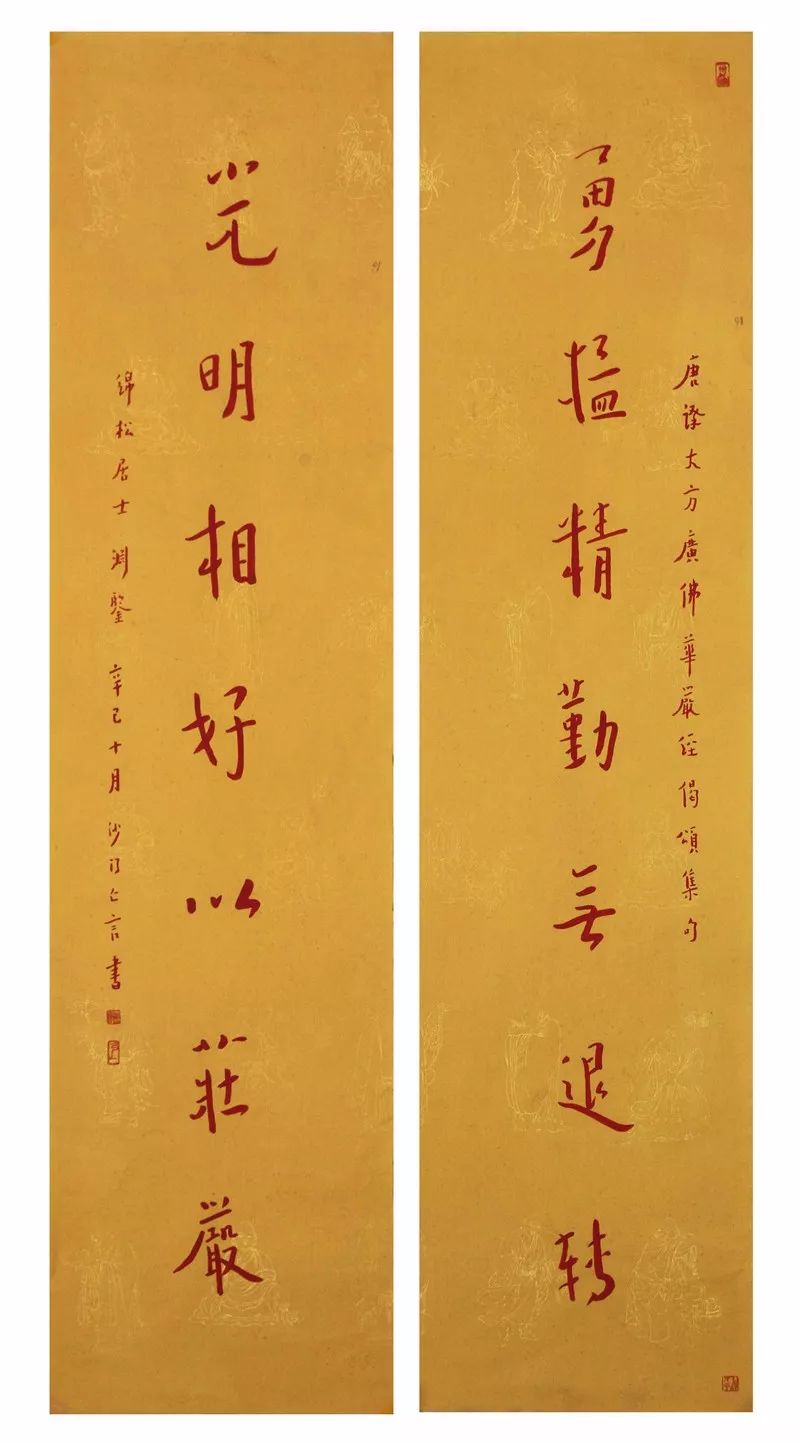 唐譯大方廣佛華嚴經偈頌集句
勇猛精勤無退轉
光明相好以莊嚴
綿松居士 淵鑒 辛巳十月 沙門亡言書